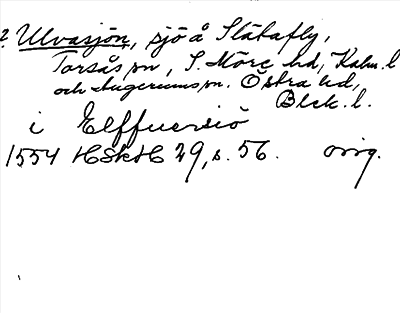 ? Ulvasjön, sjö å Slätafly,
Torsås sn, S. Möre hd, Kalm. l
och Augerums sn. Östra hd,
Blek. l.
i Elffuersiö
1554 HSkH 29, s. 56. orig.